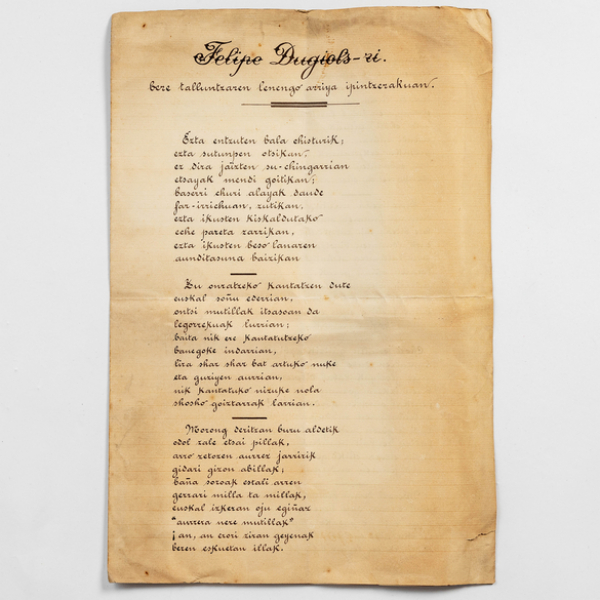 Felipe Dugiols-ri.
bere talluntzaren lenengo arriya ipintzerakuan.
Ezta entzuten bala chisturik;
ezta sutunpen otsikan,
ez dira jaizten su-chingarrian
etsayak mendi goitikan;
baserri churi alayak daude
far-irrichuan, zutikan,
ezta ikusten kiskaldutako
eche pareta zarrikan,
ezta ikusten beso lanaren
aunditasuna baizikan
Zu onratzeko kantatzen dute
euskal soñu ederrian,
ontsi mutillak itsasoan da
legorrekuak lurrian;
baita nik ere kantatutzeko
banegoke indarrian,
lira shar shar bat artuko nuke
eta guziyen aurrian,
nik kantatuko nizuke nola
shosho goiztarrak larrian.
Morong deritzan buru aldetik
odol zale etsai pillak,
arro zetozen aurrez jarririk
gidari gizon abillak;
baña zozoak estali arren
gerrari milla ta millak,
euskal izkeran oju egiñaz
"aurrera nere mutillak"
¡an, an erori ziran geyenak
beren eskuetan illak.